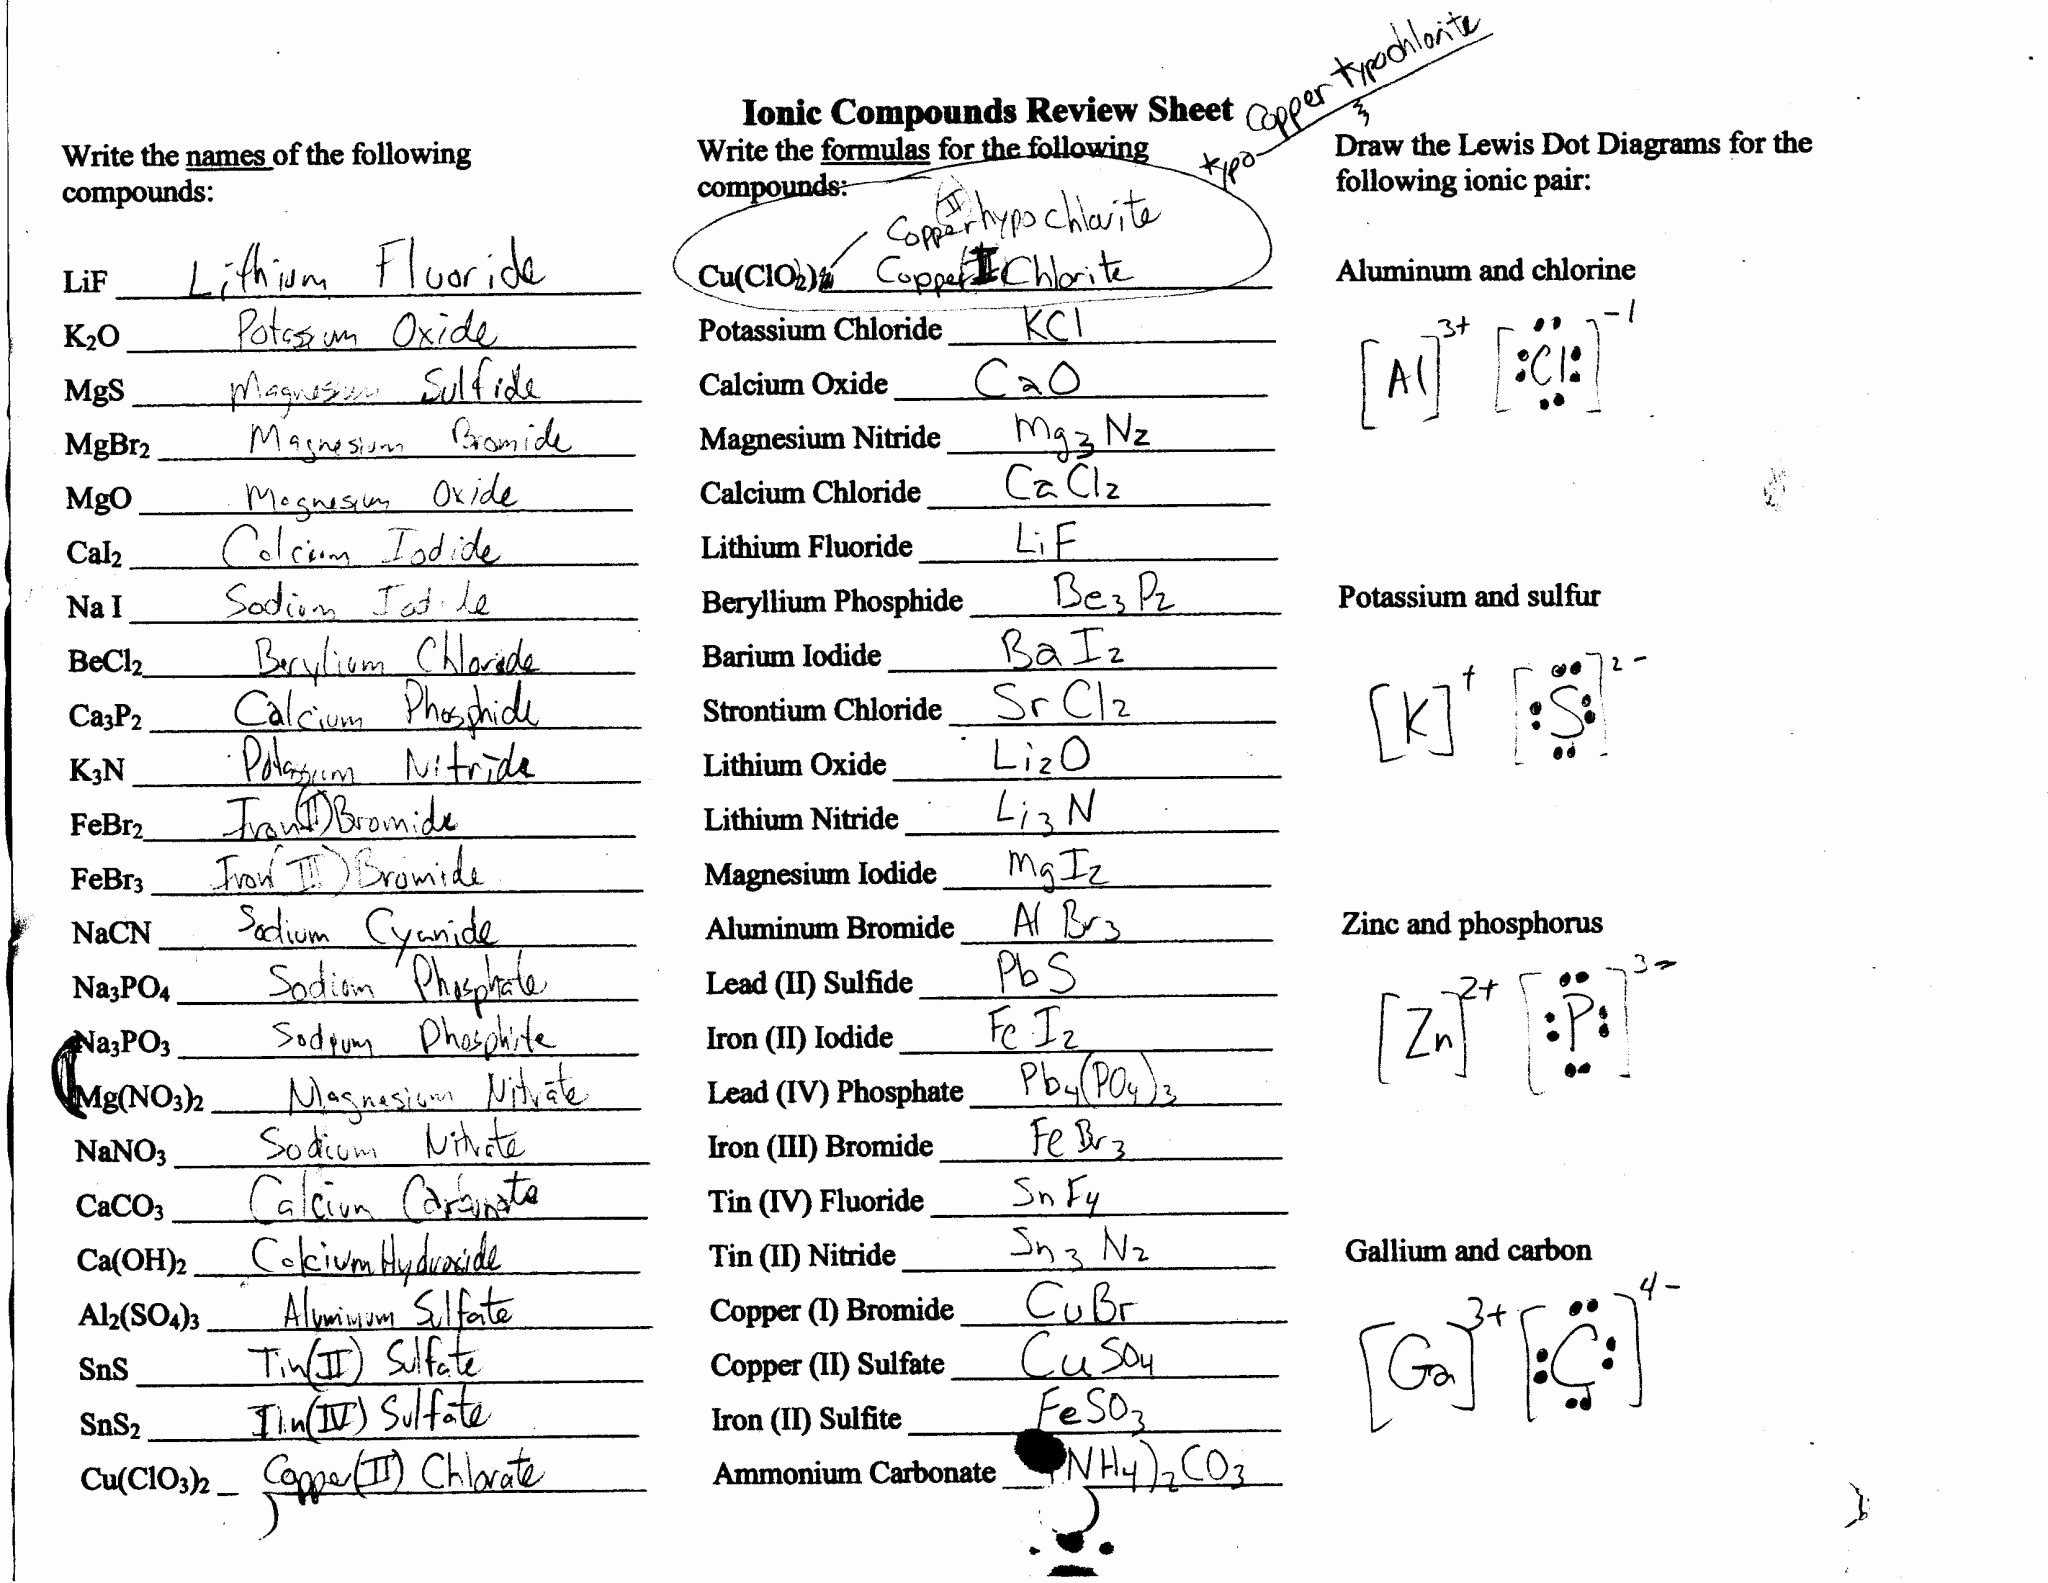 Copper Hypochlorite
Ionic Compounds Review Sheet
typo
Write the names of the following
compounds:
LiF Lithium Fluoride
K₂O Potassium Oxide
MgS Magnesium Sulfide
MgBr₂ Magnesium Bromide
MgO Magnesium Oxide
CaI₂ Calcium Iodide
Na I Sodium Iodide
BeCl₂ Berylium Chloride
Ca₃P₂ Calcium Phosphide
K₃N Potassium Nitride
FeBr₂ Iron(II) Bromide
FeBr₃ Iron(III) Bromide
NaCN Sodium Cyanide
Na₃PO₄ Sodium Phosphate
Na₃PO₃ Sodium Phosphite
Mg(NO₃)₂ Magnesium Nitrate
NaNO₃ Sodium Nitrate
CaCO₃ Calcium Carbonate
Ca(OH)₂ Calcium Hydroxide
Al₂(SO₄)₃ Aluminum Sulfate
SnS Tin(II) Sulfate
SnS₂ Tin(IV) Sulfate
Cu(ClO₃)₂ Copper(II) Chlorate
Write the formulas for the following
compounds:
Copper(II) hypochlorite
Cu(ClO₂) Copper Chlorite
Potassium Chloride KCl
Calcium Oxide CaO
Magnesium Nitride Mg₃N₂
Calcium Chloride CaCl₂
Lithium Fluoride LiF
Beryllium Phosphide Be₃P₂
Barium Iodide BaI₂
Strontium Chloride SrCl₂
Lithium Oxide Li₂O
Lithium Nitride Li₃N
Magnesium Iodide MgI₂
Aluminum Bromide AlBr₃
Lead (II) Sulfide PbS
Iron (II) Iodide FeI₂
Lead (IV) Phosphate Pb₄(PO₄)₃
Iron (III) Bromide FeBr₃
Tin (IV) Fluoride SnF₄
Tin (II) Nitride Sn₃N₂
Copper (I) Bromide CuBr
Copper (II) Sulfate CuSO₄
Iron (II) Sulfite FeSO₃
Ammonium Carbonate (NH₄)₂CO₃
Draw the Lewis Dot Diagrams for the
following ionic pair:
Aluminum and chlorine
[Al]³⁺ [Cl]⁻¹
Potassium and sulfur
[K]⁺ [S]²⁻
Zinc and phosphorus
[Zn]²⁺ [P]³⁻
Gallium and carbon
[Ga]³⁺ [C]⁴⁻